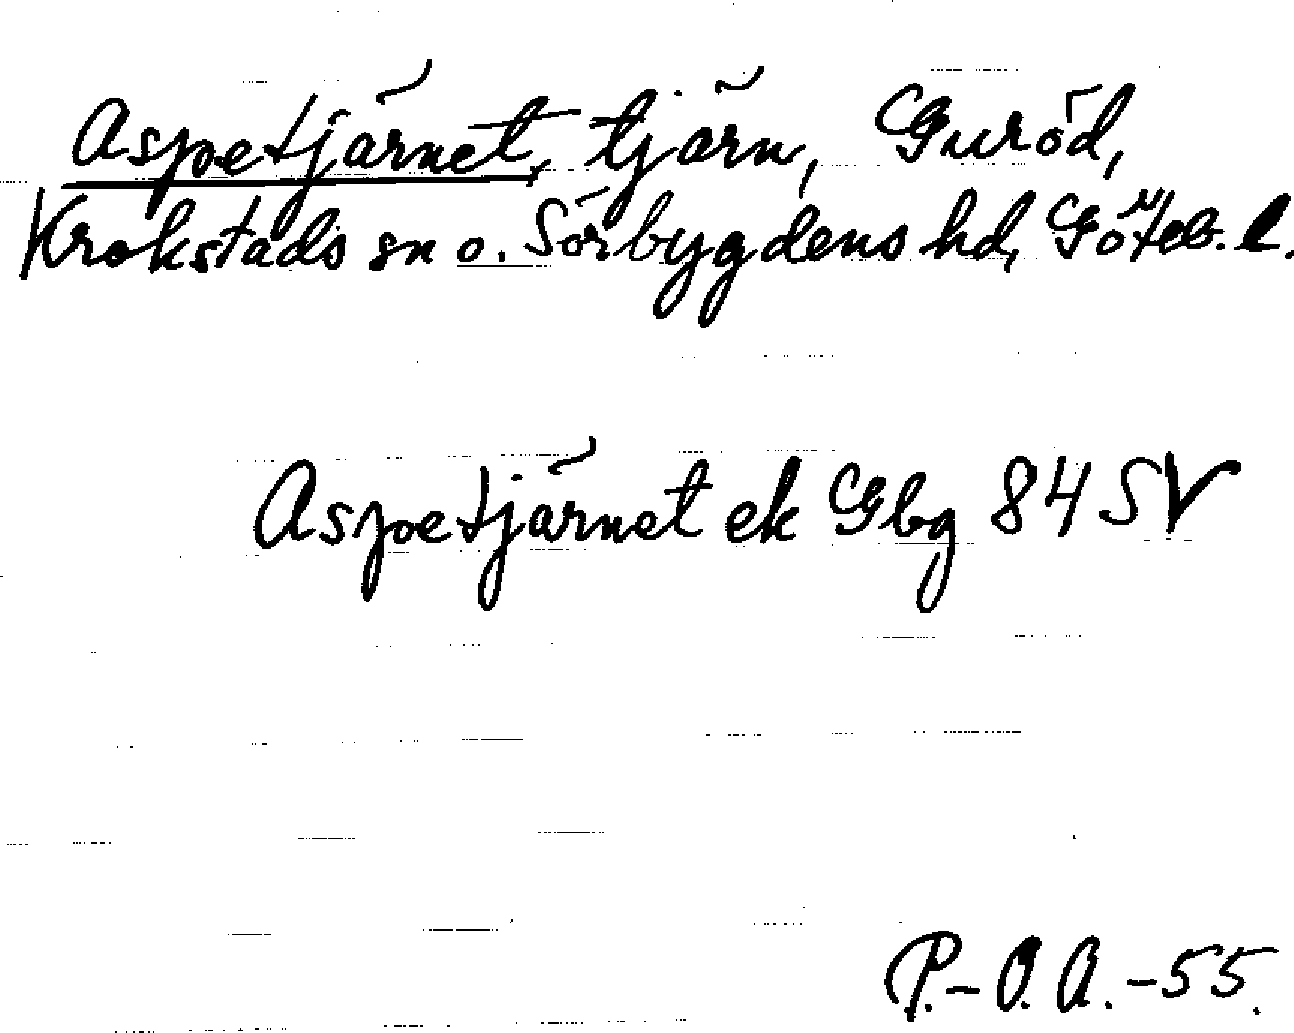 Aspetjärnet, tjärn, Guröd,
Krokstads sn o. Sörbygdens hd, Göteb. l.
Aspetjärnet ek Gbg 84 SV
P.-O. A. -55.